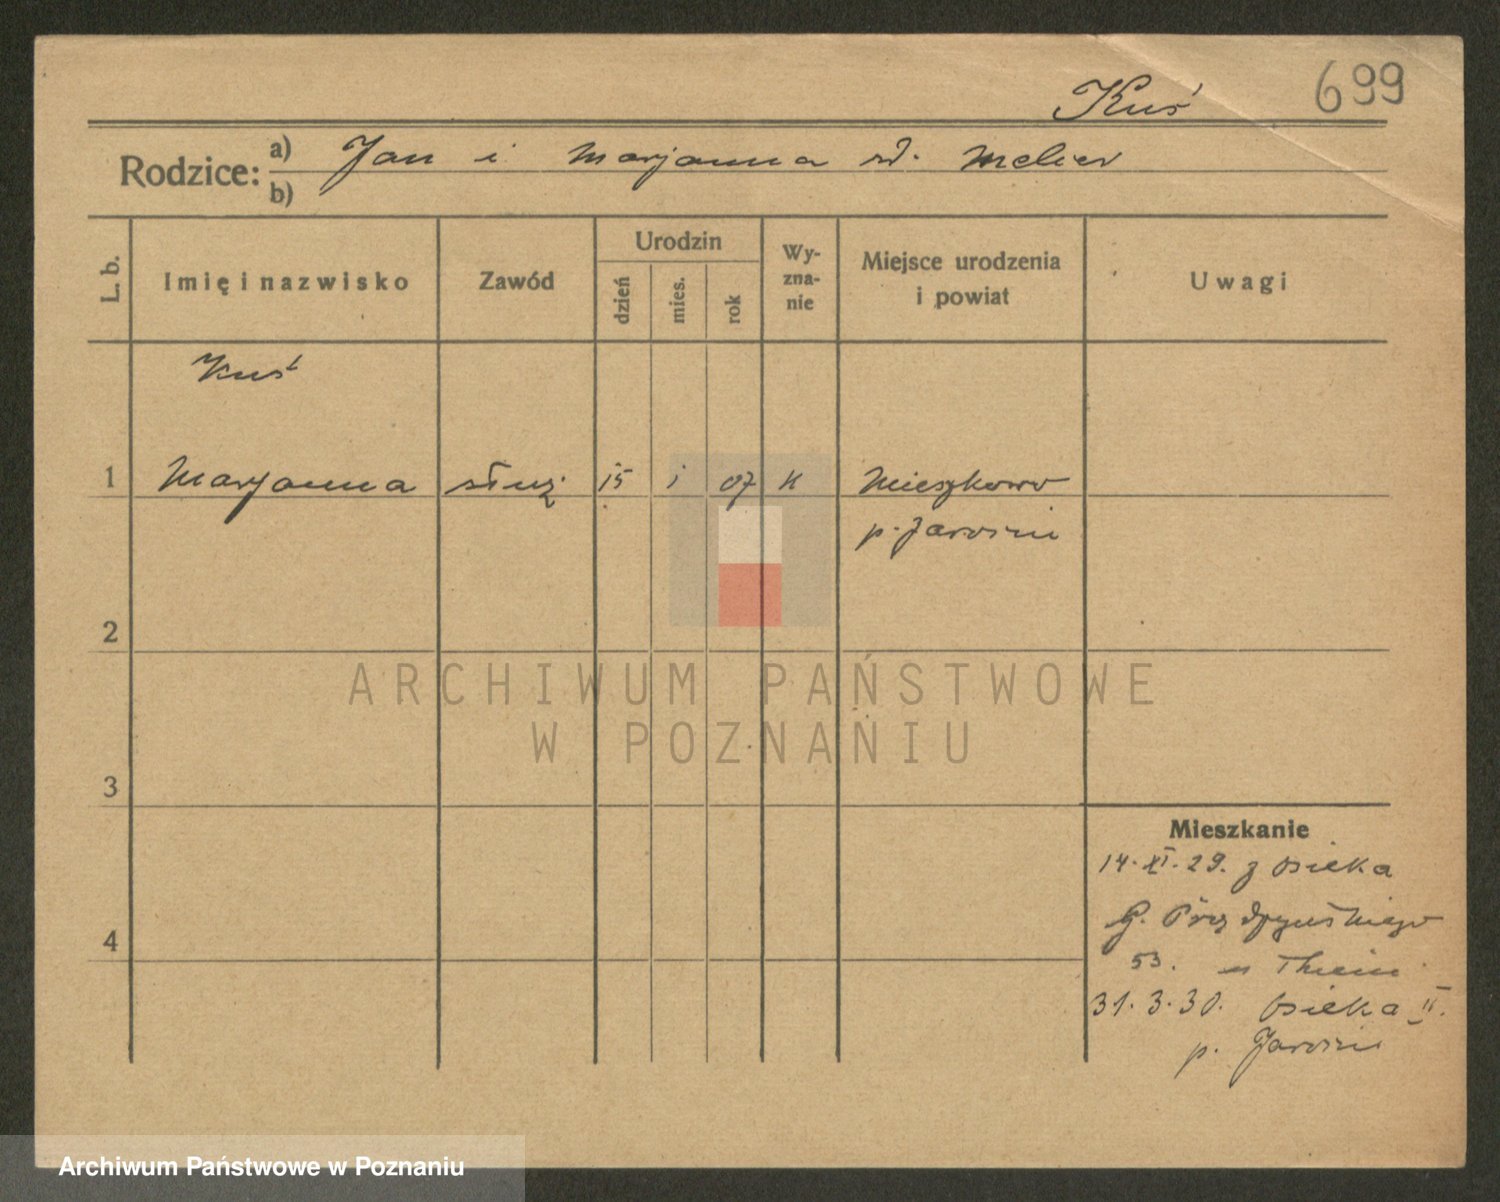 699
Kuś
Rodzice: a) Jan i Marjanna
b)
L. b. Imię i nazwisko Zawód Urodzin dzień mies. rok Wy-zna-nie Miejsce urodzenia i powiat Uwagi
Kuś
1 Marjanna służ 15 i 07 K Mieszkowo
p. Jarocin
2
ARCHIWUM PAŃSTWOWE
W POZNANIU
3
Mieszkanie
14. XI. 29. z Osieka
G.
4
53. u
31. 3. 30. Osieka II.
p. Jarocin
Archiwum Państwowe w Poznaniu